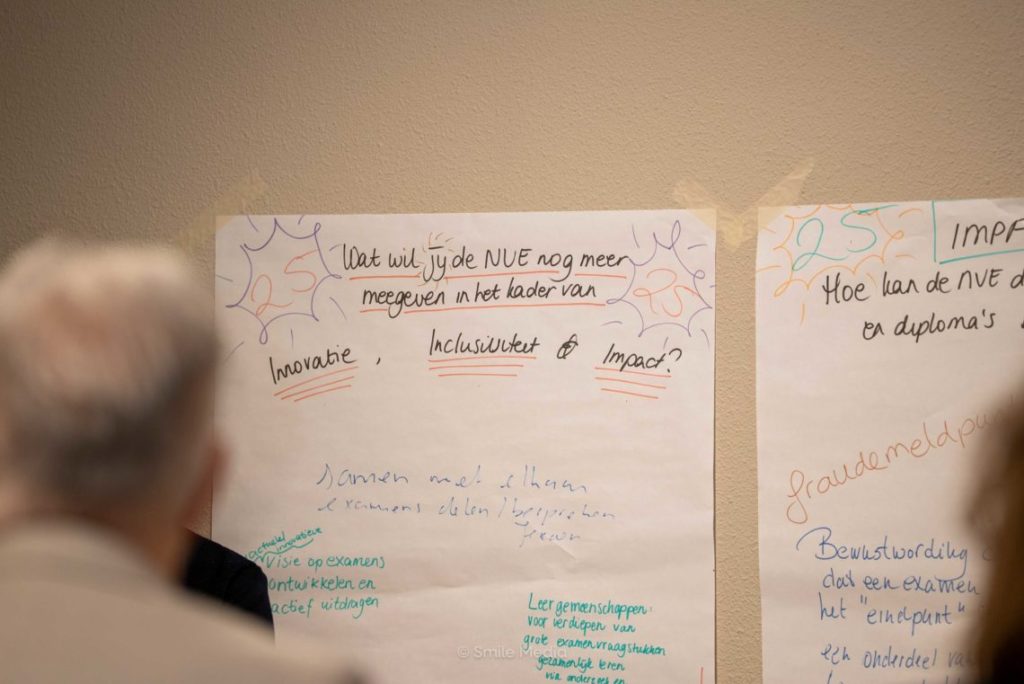 25
Wat wil jij de NVE nog meer
meegeven in het kader van
25
Innovatie, Inclusiliteit & Impact?
samen met elkaar
examens delen / bespreken
actueel
innovatieve
Visie op examens
ontwikkelen en
actief uitdragen
Leergemeenschappen:
voor verdiepen van
grote examenvraagstukken
gezamenlijk leren
via onderzoek en
© Smile Media
25
IMPF
Hoe kan de NVE d
en diploma's
fraudemeldpunt
Bewustwording
dat een examen
het "eindpunt"
een onderdeel van